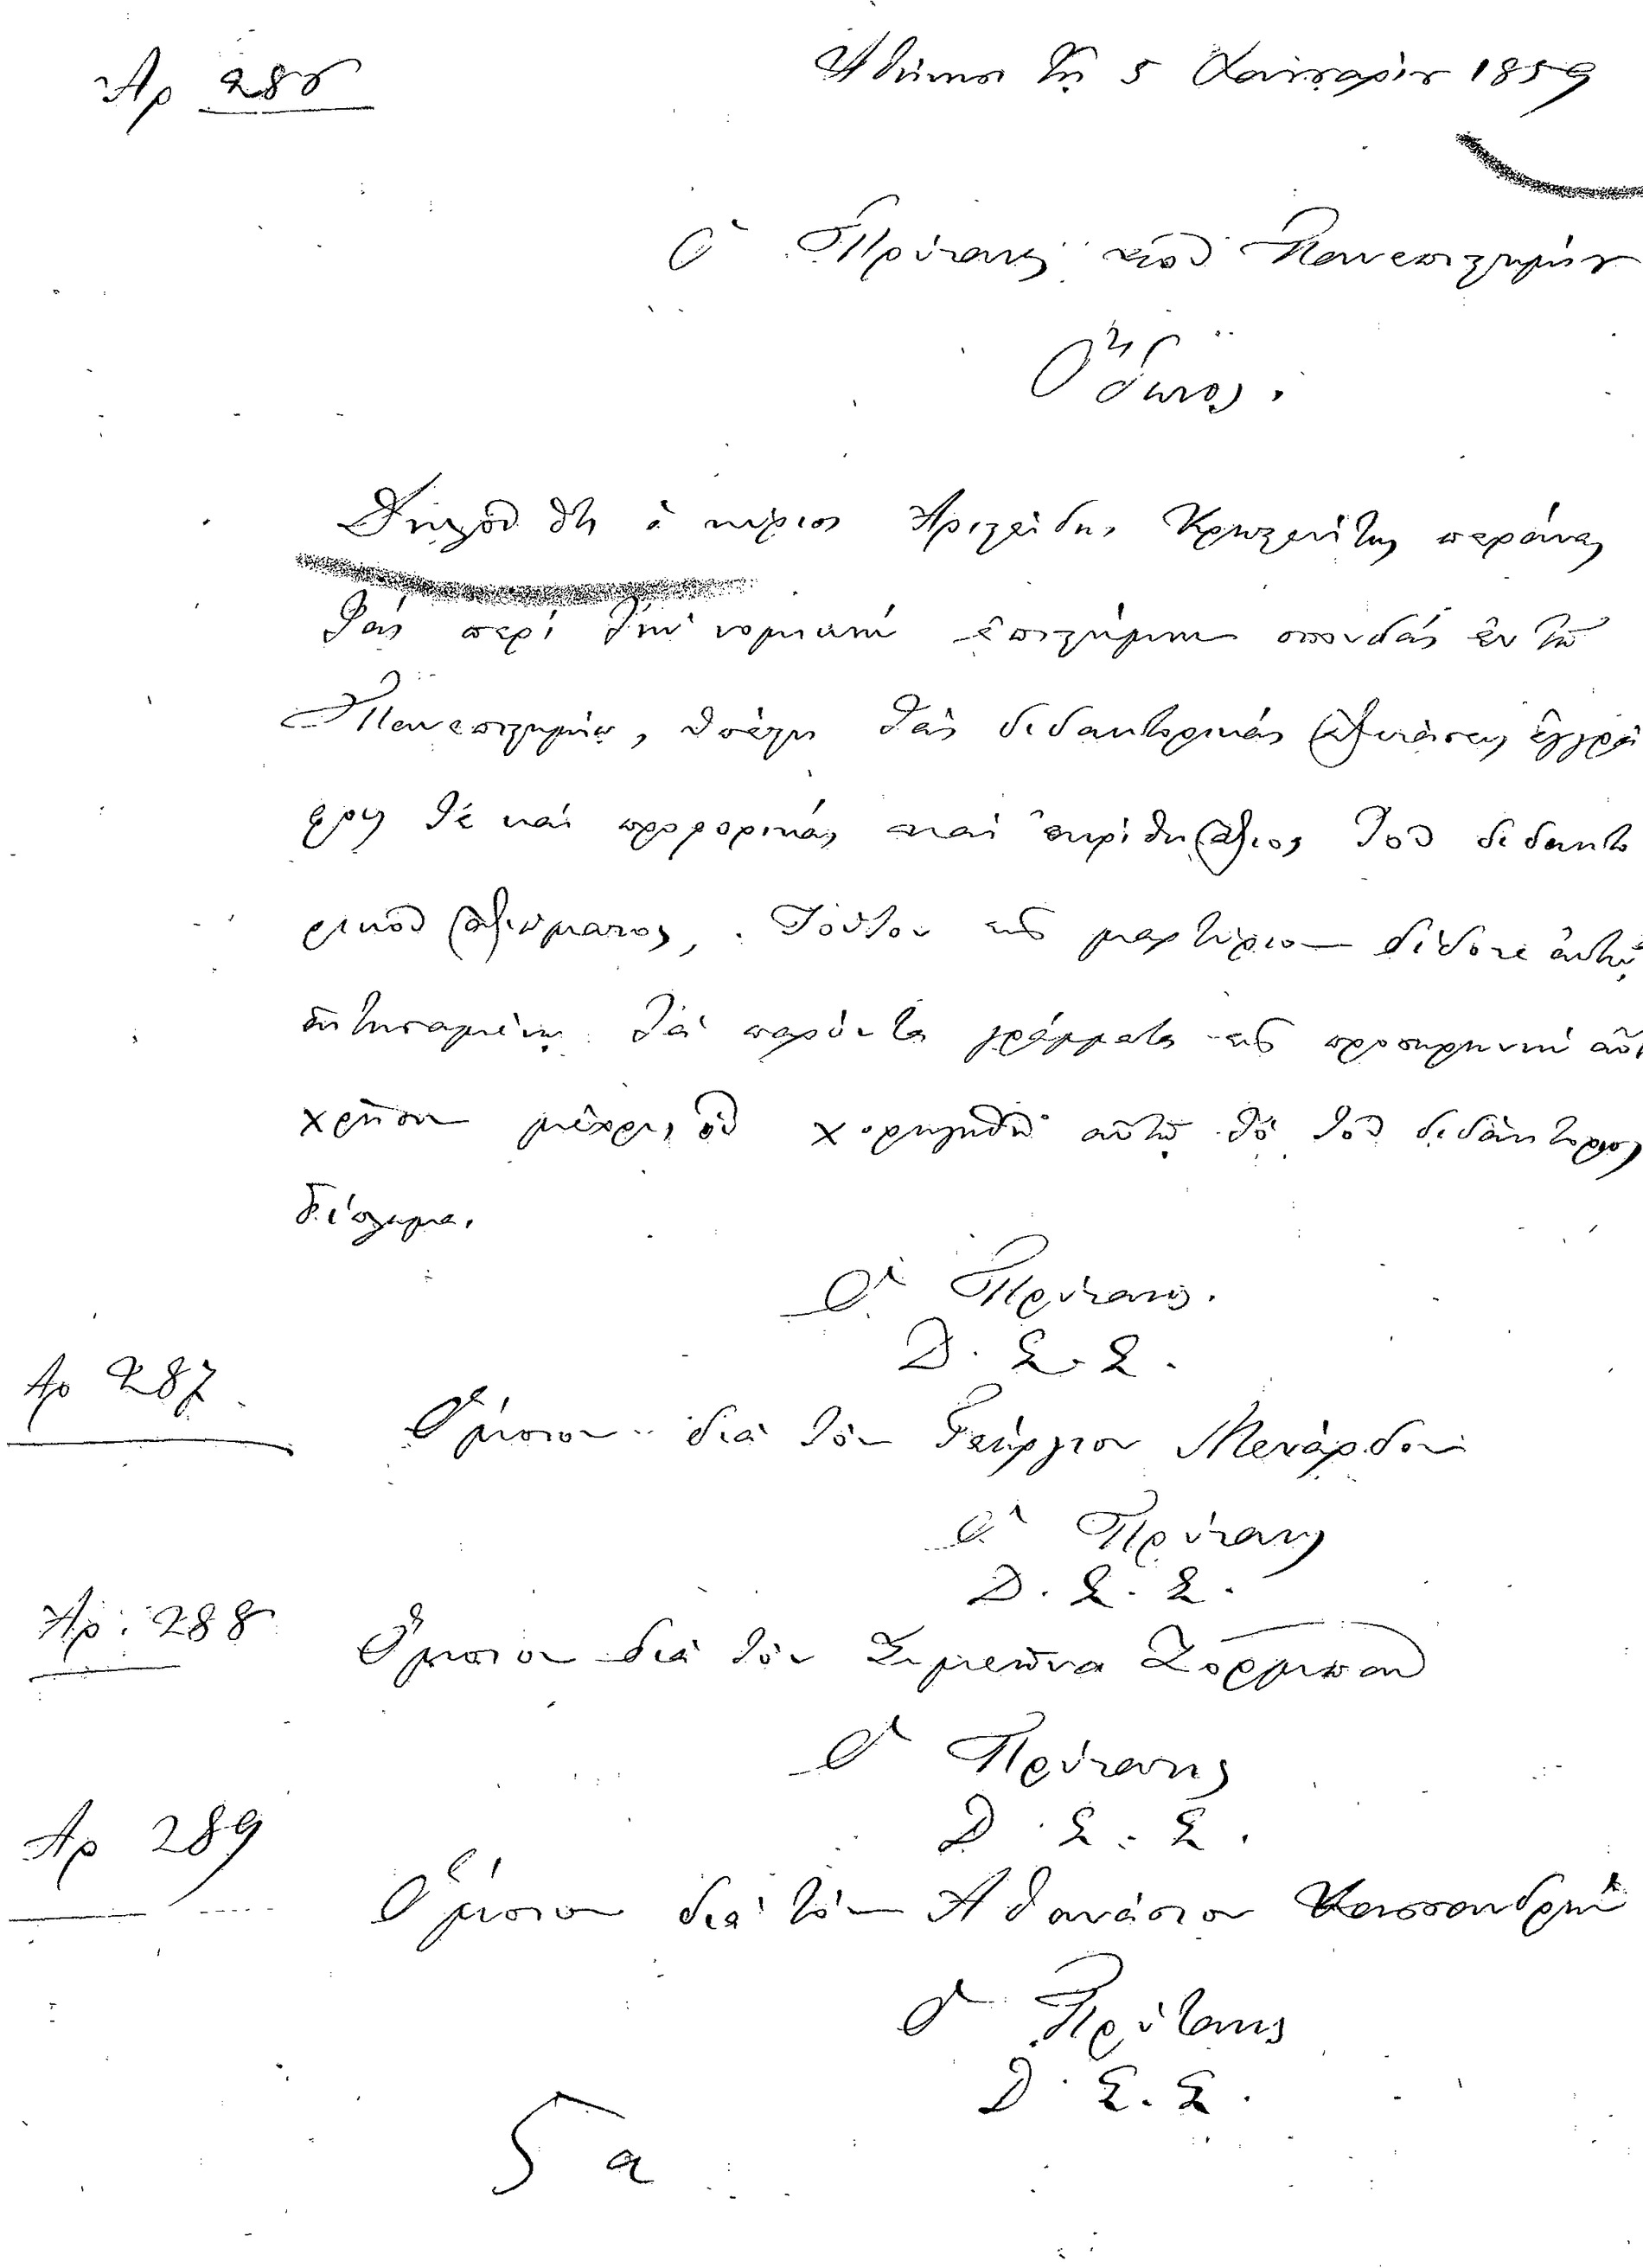 Αρ 286
Ἀθήνησι τῇ 5 Ἰανουαρίου 1859
Ὁ Πρύτανις τοῦ Πανεπιστημίου
Ὄθωνος.
Δηλοῖ ὅτι ὁ κύριος Ἀριστείδης περάνας
τὰς περὶ τὴν νομικὴν ἐπιστήμην σπουδὰς ἐν τῷ
Πανεπιστημίῳ, ὑπέστη τὰς διδακτορικὰς ἐξετάσεις ἐγγρά
φους τὲ καὶ προφορικάς καὶ ἐκρίθη ἄξιος τοῦ διδακτο
ρικοῦ ἀξιώματος, Τούτου εἰς μαρτύριον δίδοται αὐτῷ
αἰτησαμένῳ τὰ παρόντα γράμματα εἰς προσωρινὴν αὐτ
χρῆσιν μέχρις οὗ χορηγηθῇ αὐτῷ τὸ τοῦ διδάκτορος
δίπλωμα.
Ὁ Πρύτανις.
Δ. Σ. Σ.
Αρ 287
Ὅμοιον διὰ τὸν Γεώργιον Μενάρδον
Ὁ Πρύτανις
Δ. Σ. Σ.
Αρ: 288
Ὅμοιον διὰ τὸν Συμεῶνα
Ὁ Πρύτανις
Δ. Σ. Σ.
Αρ 289
Ὅμοιον διὰ τὸν Ἀθανάσιον Κασσανδρῆν
Ὁ Πρύτανις
Δ. Σ. Σ.
5 α